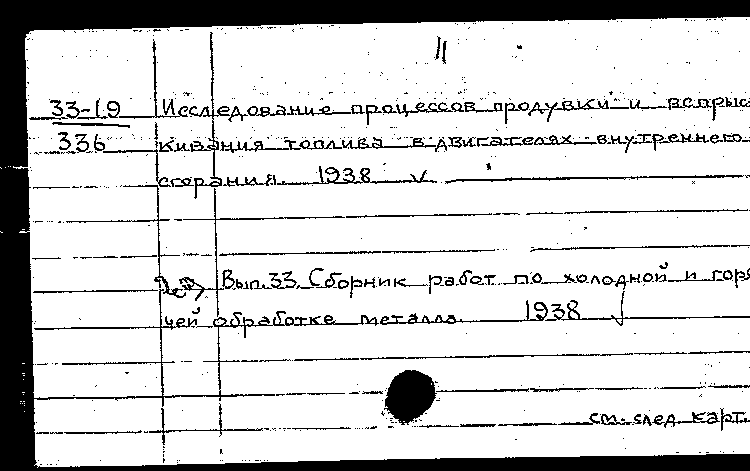 11
33-19 Исследование процессов продувки и впрыс
336 кивания топлива в двигателях внутреннего
сгорания. 1938 √
Вып.33. Сборник работ по холодной и горя
чей обработке металла. 1938 √
см. след. карт.